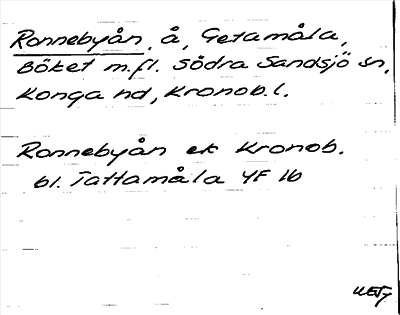 Ronnebyån, å, Getamåla,
Böket m.fl. Södra Sandsjö sn,
Konga hd, Kronob.l.
Ronnebyån ek Kronob.
bl. Tattamåla YF 1b